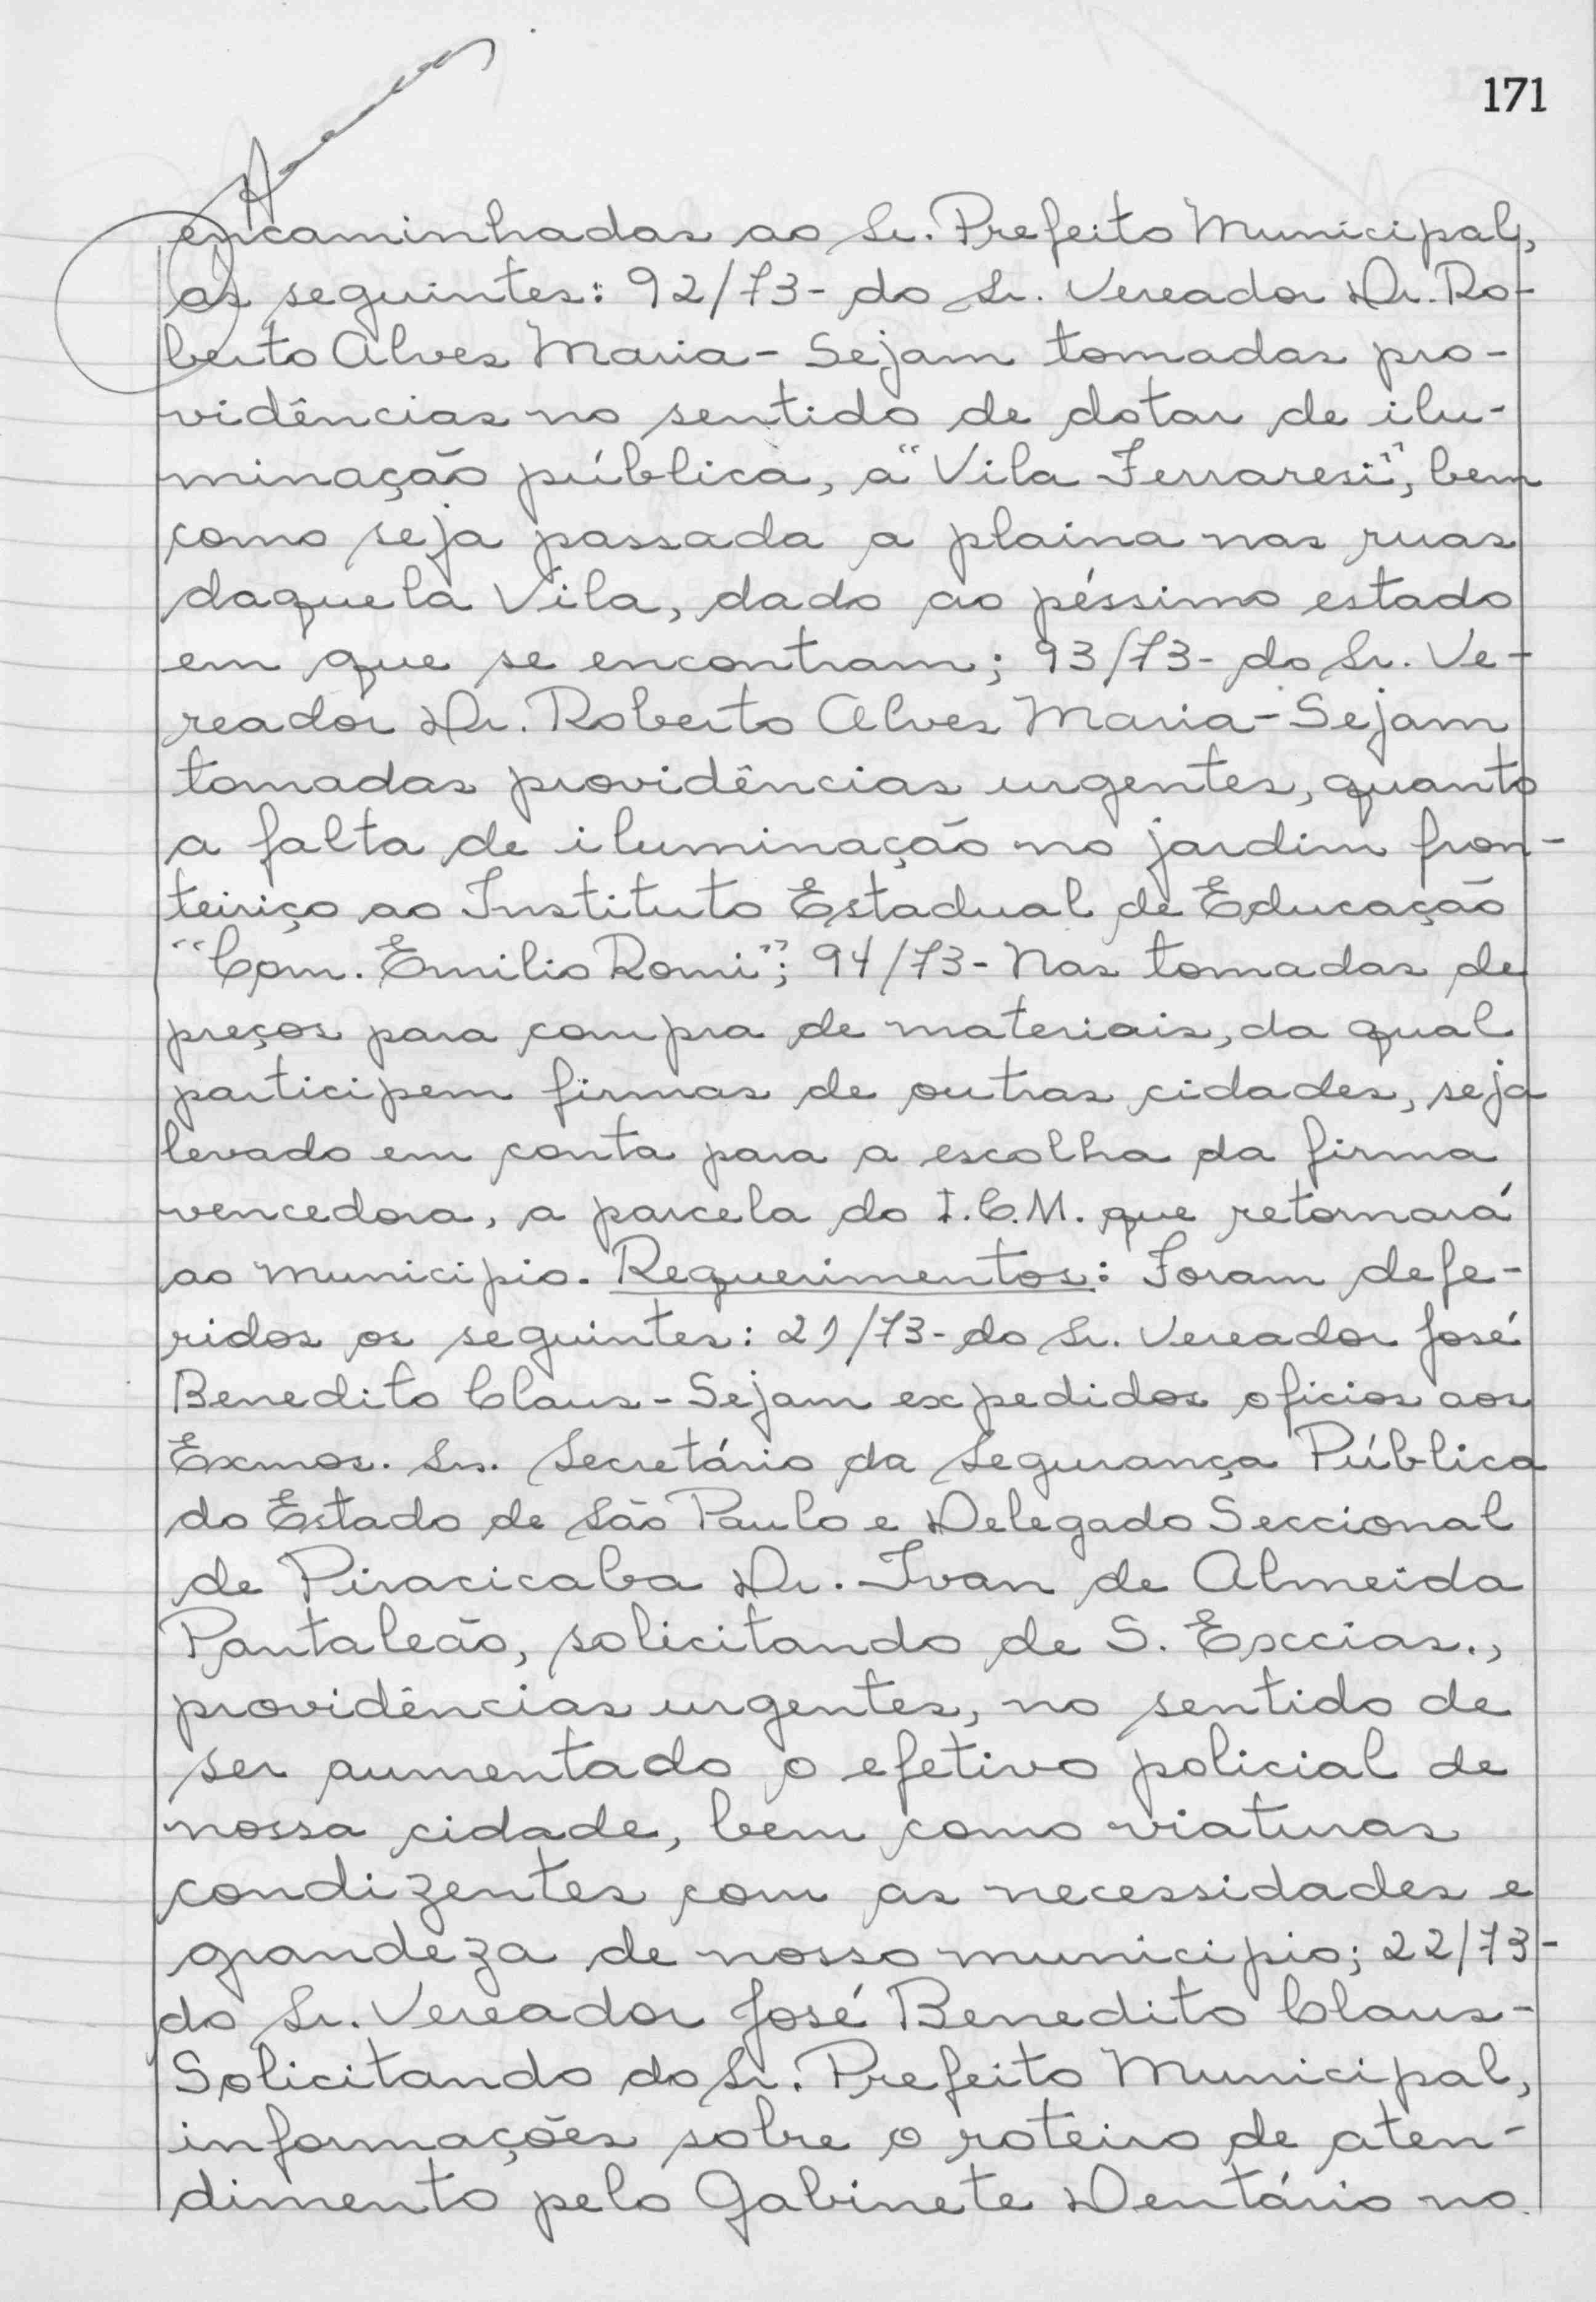 171
encaminhadas ao Sr. Prefeito Municipal,
as seguintes: 92/73- do Sr. Vereador Dr. Ro-
berto Alves Maria - Sejam tomadas pro-
vidências no sentido de dotar de ilu-
minação pública, a "Vila Ferraresi", bem
como seja passada a plaina nas ruas
daquela Vila, dado ao péssimo estado
em que se encontram; 93/73- do Sr. Ve-
reador Dr. Roberto Alves Maria - Sejam
tomadas providências urgentes, quanto
a falta de iluminação no jardim fron-
teiriço ao Instituto Estadual de Educação
"Com. Emilio Romi"; 94/73- Nas tomadas de
preços para compra de materiais, da qual
participem firmas de outras cidades, seja
levado em conta para a escolha da firma
vencedora, a parcela do I.C.M. que retornará
ao municipio. Requerimentos: Foram defe-
ridos os seguintes: 21/73- do Sr. Vereador José
Benedito Claus - Sejam expedidos oficios aos
Exmos. Srs. Secretário da Segurança Pública
do Estado de São Paulo e Delegado Seccional
de Piracicaba Dr. Ivan de Almeida
Pantaleão, solicitando de S. Exccias.,
providências urgentes, no sentido de
ser aumentado o efetivo policial de
nossa cidade, bem como viaturas
condizentes com as necessidades e
grandeza de nosso municipio; 22/73-
do Sr. Vereador José Benedito Claus -
Solicitando do Sr. Prefeito Municipal,
informações sobre o roteiro de aten-
dimento pelo Gabinete Dentário no